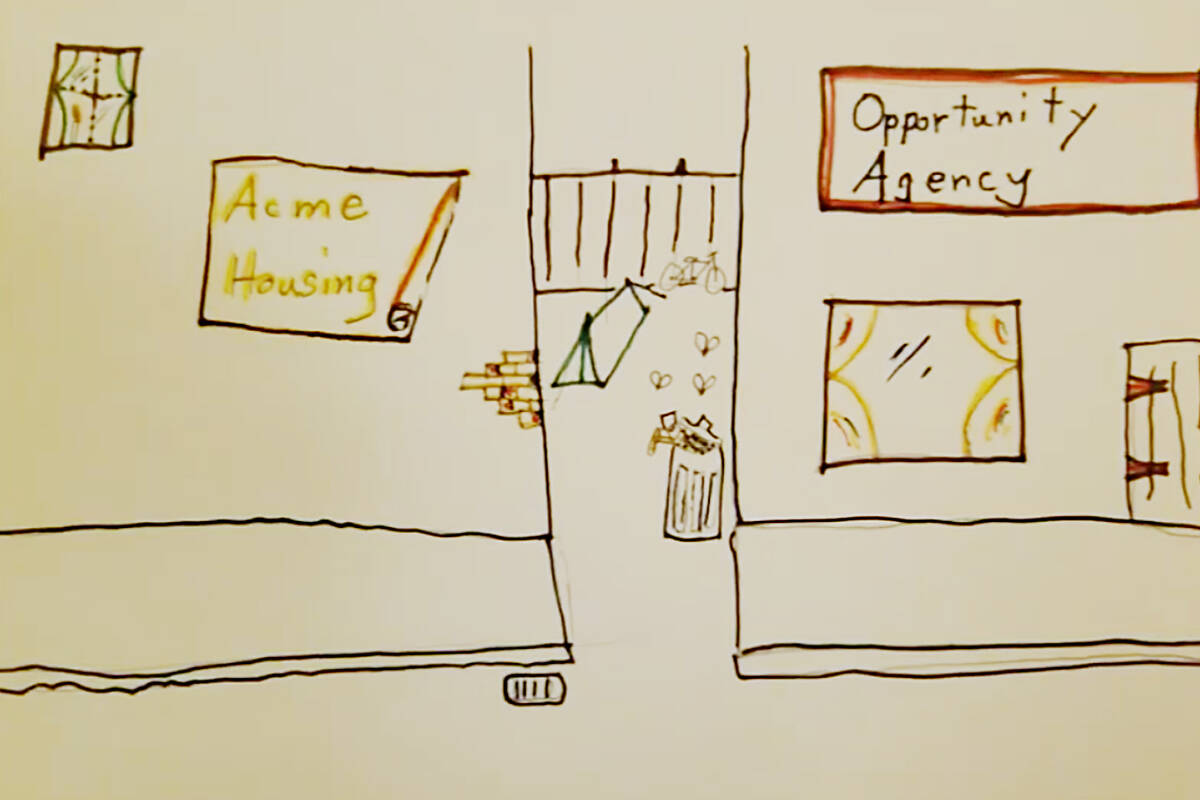 Acme
Housing
Opportunity
Agency